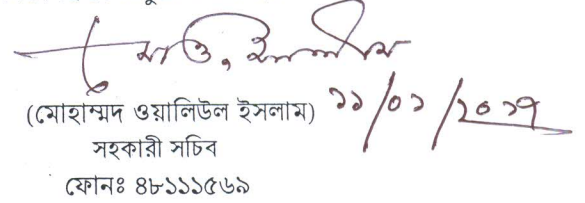 মোঃ ও, ইসলাম
(মোহাম্মদ ওয়ালিউল ইসলাম) ১১/০১/২০১৭
সহকারী সচিব
ফোনঃ ৪৮১১১৫৬৯